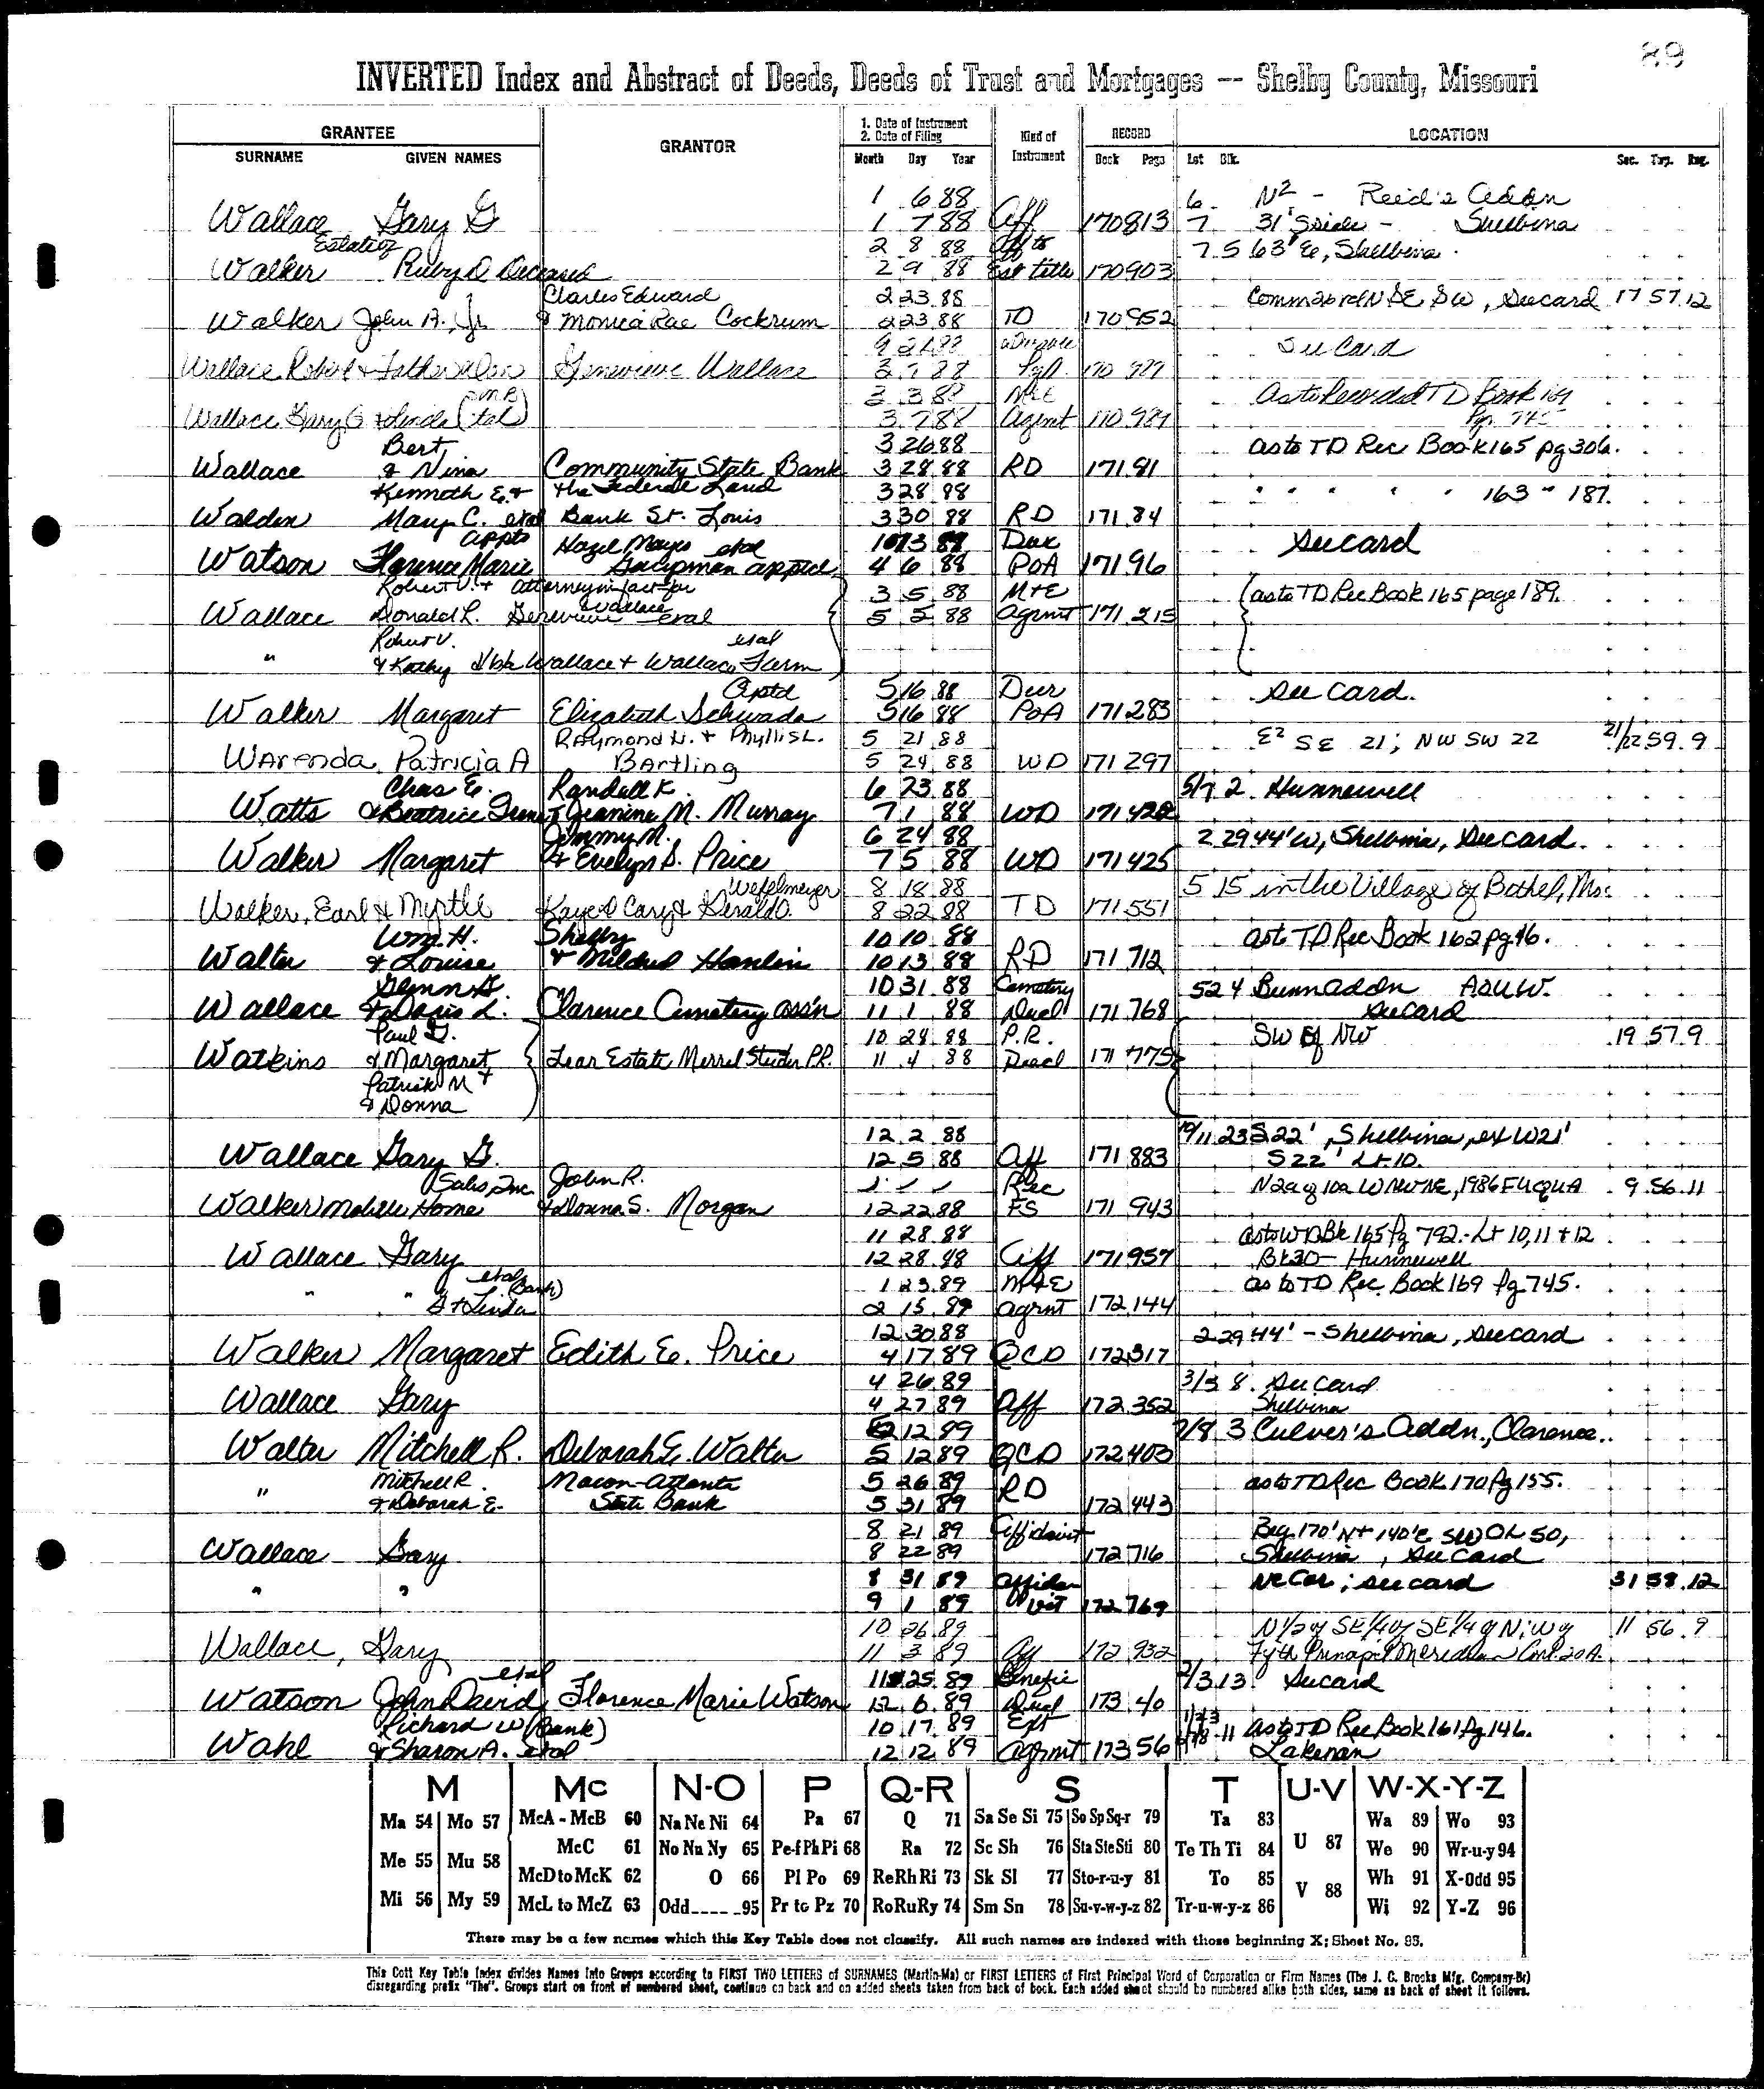 89
INVERTED Index and Abstract of Deeds, Deeds of Trust and Mortgages -- Shelby County, Missouri
GRANTEE
SURNAME GIVEN NAMES
GRANTOR
1. Date of Instrument
2. Date of Filing
Month Day Year
Kind of Instrument
RECORD
Book Page
LOCATION
Lot Blk. Sec. Twp. Rng.
1 6 88 6 N2 - Reid's Addn
Wallace Gary G 1 7 88 Aff 170 813 7 31' S side - Shelbina
Estate of 2 8 88 Aff to 7 5 63' E, Shelbina
Walker Ruby D Deceased 2 9 88 Est title 170 903
Charles Edward 2 23 88 SE SW, See card 17 57 12
Walker John A., Jr & Monica Rae Cockrum 2 23 88 TD 170 952
See Card
Wallace Robert & Genevieve Wallace 170
3 3 88 M&E as to Recorded TD Book 169
Wallace Gary G & Linda (etal) 3 7 88 Agrmt 170 989 Pg 745
Bert 3 26 88 as to TD Rec Book 165 pg 306.
Wallace & Nina Community State Bank 3 28 88 RD 171 81
Kenneth E. & the Federal Land 3 28 88 " " " " " 163 " 187.
Walden Mary C. etal Bank St. Louis 3 30 88 RD 171 84
appts Hazel Mayes etal Dur See card
Watson Florence Marie apptd 4 6 88 POA 171 96
Robert V. & attorney in fact for 3 5 88 M+E as to TD Rec Book 165 page 189.
Wallace Donald R. Genevieve Wallace etal 5 5 88 Agrmt 171 215
Robert V. etal
" & Kathy dba Wallace & Wallace Farm
Aptd 5 16 88 Dur See card.
Walker Margaret Elizabeth Schwada 5 16 88 POA 171 283
Raymond H. & Phyllis L. 5 21 88 E2 SE 21; NW SW 22 21/22 59 9
Warenda Patricia A Bartling 5 24 88 WD 171 297
Chas E. Randall K. 6 23 88 5/7 2 Hunnewell
Watts & Beatrice Irene & Jeanine M. Murray 7 1 88 WD 171 422
Jimmy M. 6 24 88 2 29 44' W, Shelbina, See card.
Walker Margaret & Evelyn S. Price 7 5 88 WD 171 425
Wefelmeyer 8 18 88 5 15 in the Village of Bethel, Mo.
Walker, Earl & Myrtle Kaye D Cary & Gerald O. 8 22 88 TD 171 551
Wm. H. Shelby 10 10 88 as to TD Rec Book 162 pg 46.
Walter & Louise & Mildred Hamlin 10 13 88 RD 171 712
Glenn G. 10 31 88 Cemetery 52 4 Bunn addn
Wallace & Doris L. Clarence Cemetery Ass'n 11 1 88 Deed 171 768 See card
Paul G. 10 28 88 P.R. SW of NW 19 57 9
Watkins & Margaret Lear Estate Merrel Studer P.R. 11 4 88 Deed 171 775
Patrick M &
& Donna
12 2 88 10/11 23 S22', Shelbina, ex W21'
Wallace Gary G. 12 5 88 Aff 171 883 S 22' Lt 10.
Sales, Inc. John R. Rec N2a of 10a W NW NE, 1986 FUQUA 9 56 11
Walker Mobile Home & Donna S. Morgan 12 22 88 FS 171 943
11 28 88 as to WD Bk 165 Pg 792 - Lt 10, 11 + 12
Wallace Gary 12 28 88 Aff 171 957 Bk 30 - Hunnewell
etal (Bank) 1 23 89 M+E as to TD Rec Book 169 Pg 745.
" " G & Linda 2 15 89 agrmt 172 144
12 30 88 2 29 44' - Shelbina, See card
Walker Margaret Edith E. Price 4 17 89 QCD 172 317
4 26 89 3/5 8. See Card
Wallace Gary 4 27 89 Aff 172 352 Shelbina
5 12 89 7/8 3 Culver's Addn., Clarence.
Walter Mitchell R. Deborah E. Walter 5 12 89 QCD 172 403
Mitchell R. Macon-Atlanta 5 26 89 as to TD Rec Book 170 Pg 155.
" & Deborah E. State Bank 5 31 89 RD 172 443
8 21 89 Affidavit Beg 170' N + 140' E SW OL 50,
Wallace Gary 8 22 89 172 716 Shelbina, See Card
" " 8 31 89 Affida NE Cor; See card 31 58 12
9 1 89 vit 172 769
10 26 89 N1/2 of SE1/4 of SE1/4 of NW 11 56 9
Wallace, Gary 11 3 89 Aff 172 932 Fifth Principal Meridian Cont. 20A.
etal 11 25 89 Benefic 2/3 13 See card
Watson John David Florence Marie Watson 12 6 89 Deed 173 40
Richard W (Bank) 10 17 89 Ext as to TD Rec Book 161 Pg 146.
Wahl & Sharon A. etal 12 12 89 Agrmt 173 56 Lakenan
M Mc N-O P Q-R S T U-V W-X-Y-Z
Ma 54 Mo 57 McA - McB 60 Na Ne Ni 64 Pa 67 Q 71 Sa Se Si 75 So Sp Sq-r 79 Ta 83 U 87 Wa 89 Wo 93
Me 55 Mu 58 McC 61 No Nu Ny 65 Pe-f Ph Pi 68 Ra 72 Sc Sh 76 Sta Ste Sti 80 Te Th Ti 84 We 90 Wr-u-y 94
McD to McK 62 O 66 Pl Po 69 Re Rh Ri 73 Sk Sl 77 Sto-r-u-y 81 To 85 V 88 Wh 91 X-Odd 95
Mi 56 My 59 McL to McZ 63 Odd 95 Pr to Pz 70 Ro Ru Ry 74 Sm Sn 78 Su-v-w-y-z 82 Tr-u-w-y-z 86 Wi 92 Y-Z 96
There may be a few names which this Key Table does not classify. All such names are indexed with those beginning X; Sheet No. 95.
This Cott Key Table Index divides Names into Groups according to FIRST TWO LETTERS of SURNAMES (Martin-Ma) or FIRST LETTERS of First Principal Word of Corporation or Firm Names (The J. C. Brooks Mfg. Company-Br)
disregarding prefix "The". Groups start on front of numbered sheet, continue on back and on added sheets taken from back of book. Each added sheet should be numbered alike both sides, same as back of sheet it follows.